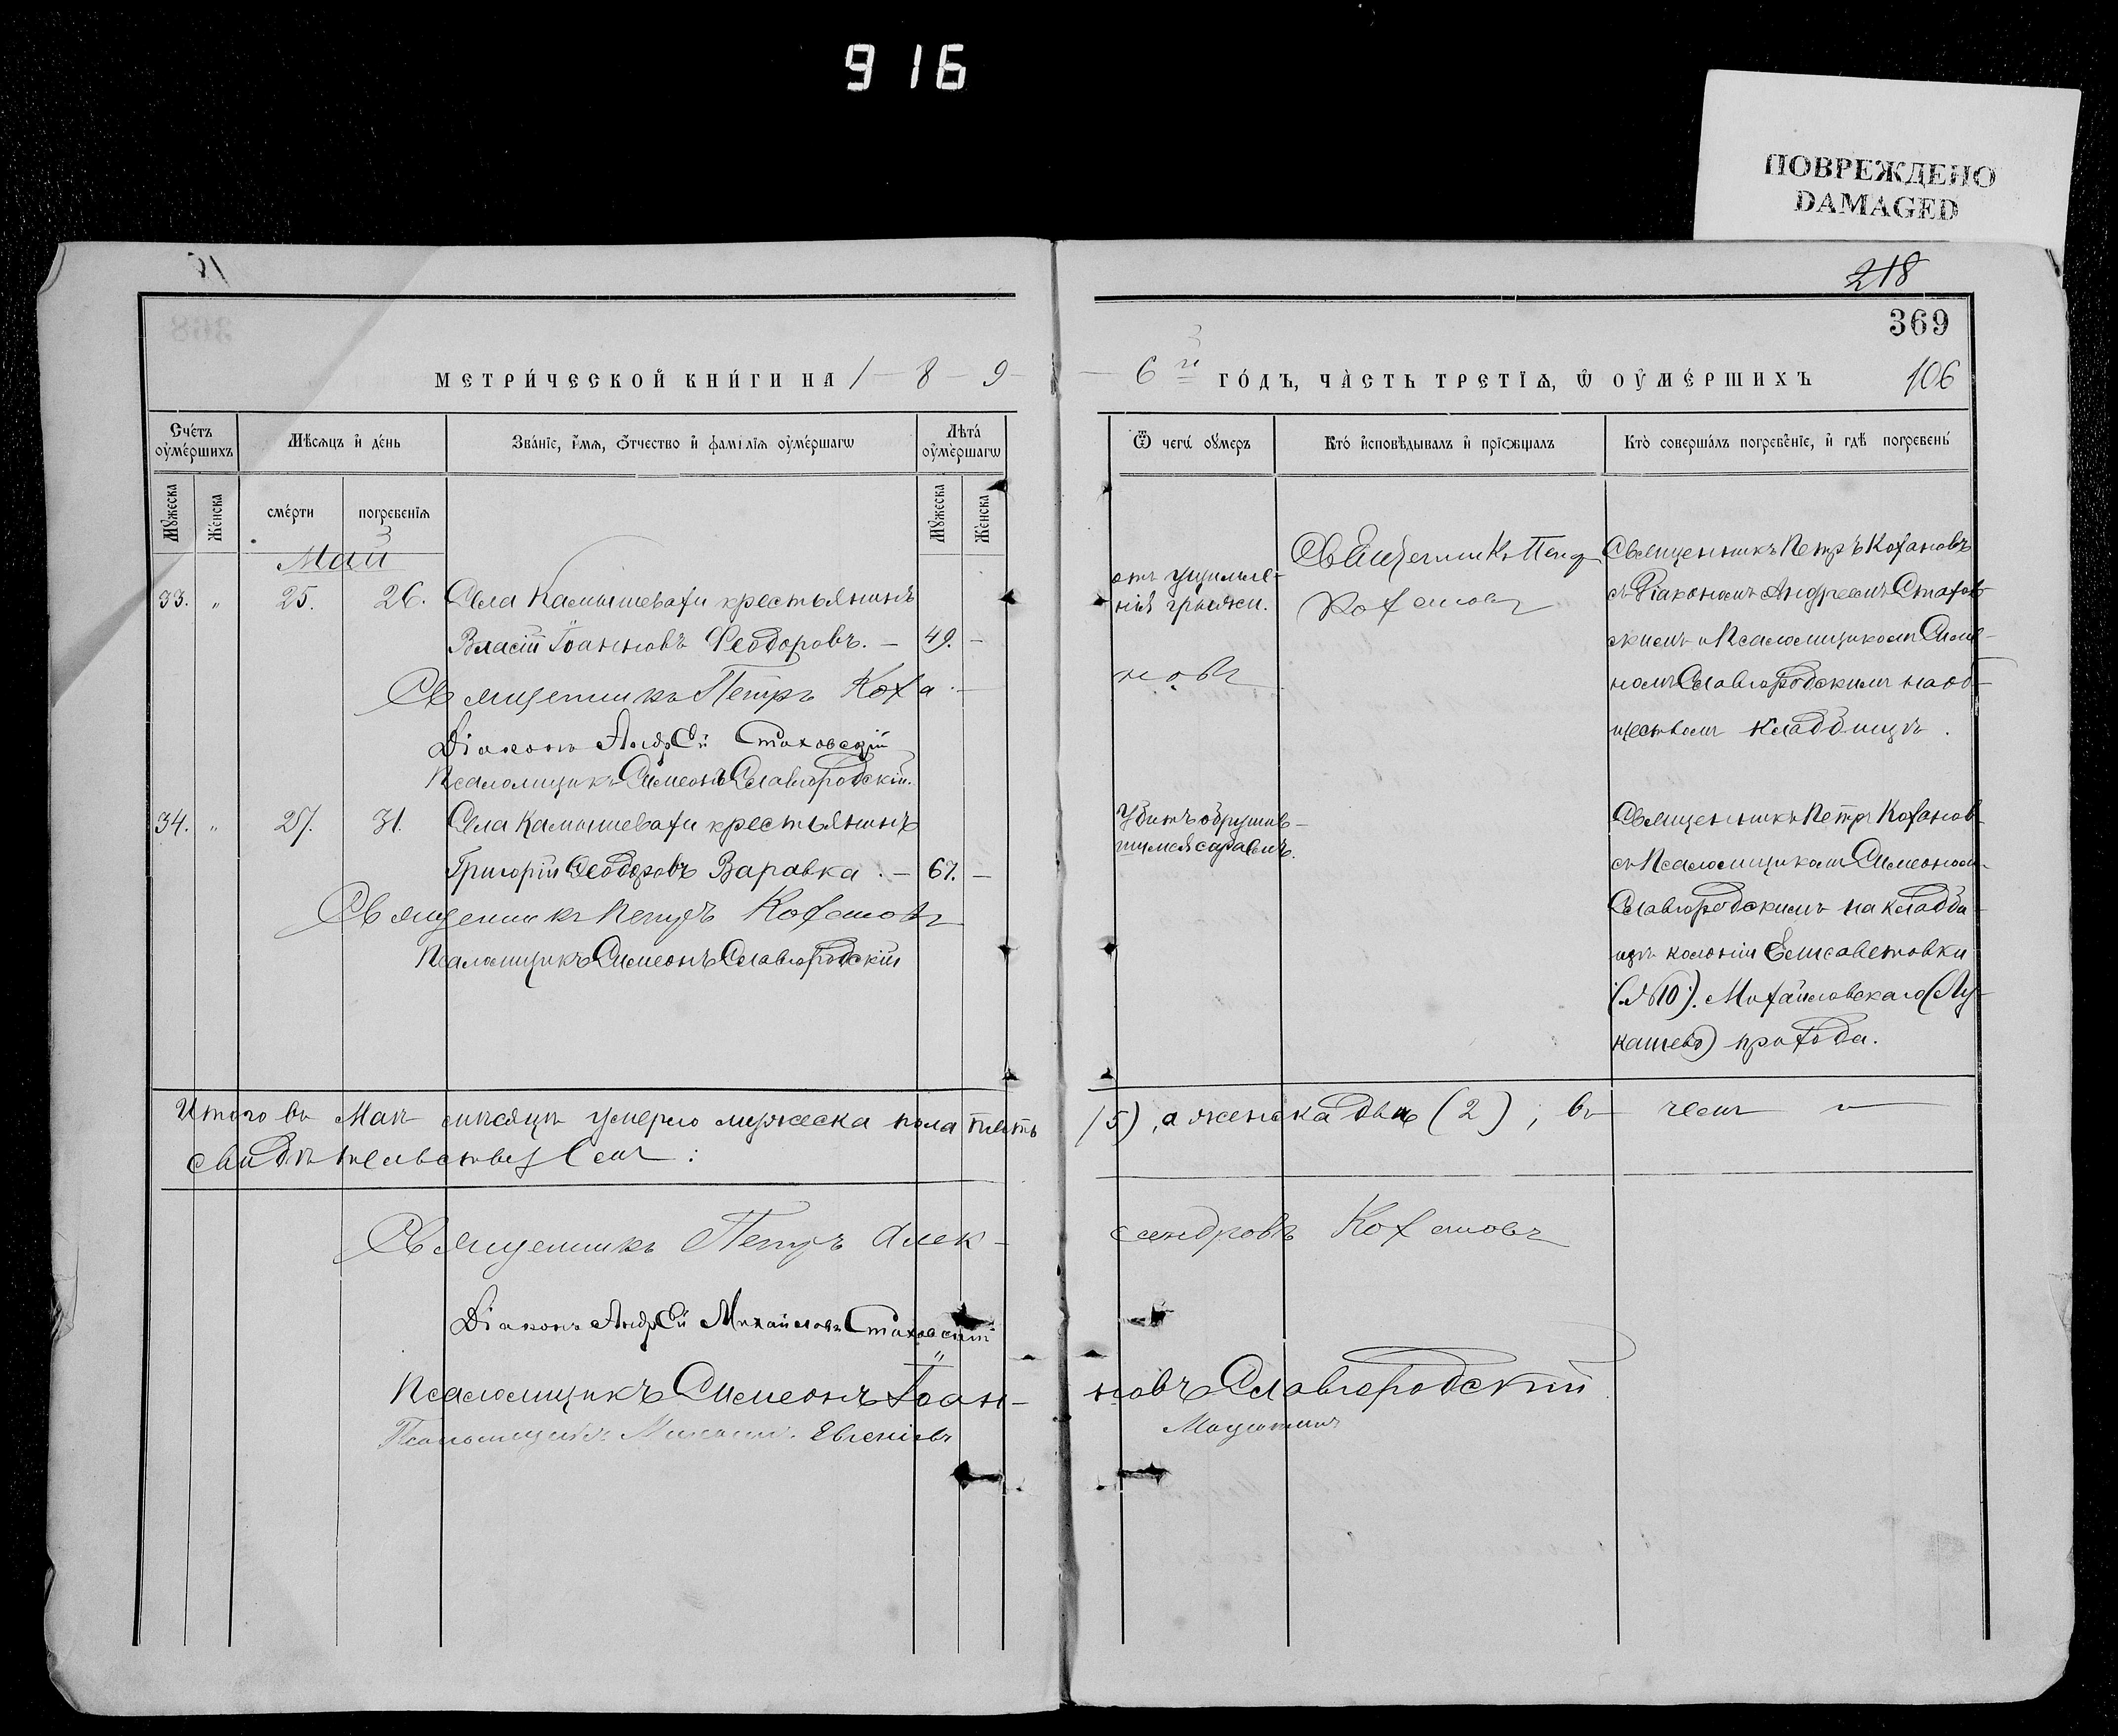 916
ПОВРЕЖДЕНО
DAMAGED
218
369
106
МЕТРИ́ЧЕСКОЙ КНИ́ГИ НА 1 - 8 - 9 - 6 й ГО́ДЪ, ЧА̀СТЬ ТРЕТІѦ, Ѿ ОУ҆МЕ́РШИХЪ
Сче́тъ оу҆ме́ршихъ
Мѣ́сяцъ и҆ де́нь
Зва́нїе, и҆́мя, о҆́тчество и҆ фамі́лїя оу҆ме́ршагѡ
Лѣта́ оу҆ме́ршагѡ
Ѿ чегѡ̀ оу҆́меръ
Кто̀ и҆сповѣ́дывалъ и҆ прїѡбща́лъ
Кто̀ соверша́лъ погребе́нїе, и҆ гдѣ̀ погребены̀
Мꙋ́жеска
Же́нска
сме́рти
погребе́нїя
Мꙋ́жеска
Же́нска
Май
33. " 25. 26. Села Камышевахи крестьянинъ
Власій Іоанновъ Феодоровъ. - 49. -
отъ ущемле-
нія грыжи.
Священникъ Петръ
Кохановъ
Священникъ Петръ Кохановъ
съ Діакономъ Андреемъ Стахов-
скимъ и Псаломщикомъ Симе-
номъ Славгородскимъ на об-
щественомъ кладбищѣ.
Священникъ Петръ Коха-
новъ
Діаконъ Андрей Стаховскій
Псаломщикъ Симеонъ Славгородскій.
34. " 27. 31. Села Камышевахи крестьянинъ
Григорій Ѳеодоровъ Варавка. - 67. -
Убитъ обрушив-
шимся сараемъ.
Священникъ Петръ Коханов
съ Псаломщикомъ Симеономъ
Славгородскимъ на кладби-
щѣ колоніи Елисаветовки
(№10). Михайловскаго (Лу-
кашево) прихода.
Священникъ Петръ Кохановъ
Псаломщикъ Симеонъ Славгородскій
Итого въ Маѣ мѣсяцѣ умерло мужеска пола пять (5), а женска двѣ (2); въ чемъ и
свидѣтельствуемъ:
Священникъ Петръ Алек-
сандровъ Кохановъ
Діаконъ Андрей Михайловъ Стаховскій
Псаломщикъ Симеонъ Іоан-
новъ Славгородскій
Псаломщикъ Михаилъ Евгеніевъ